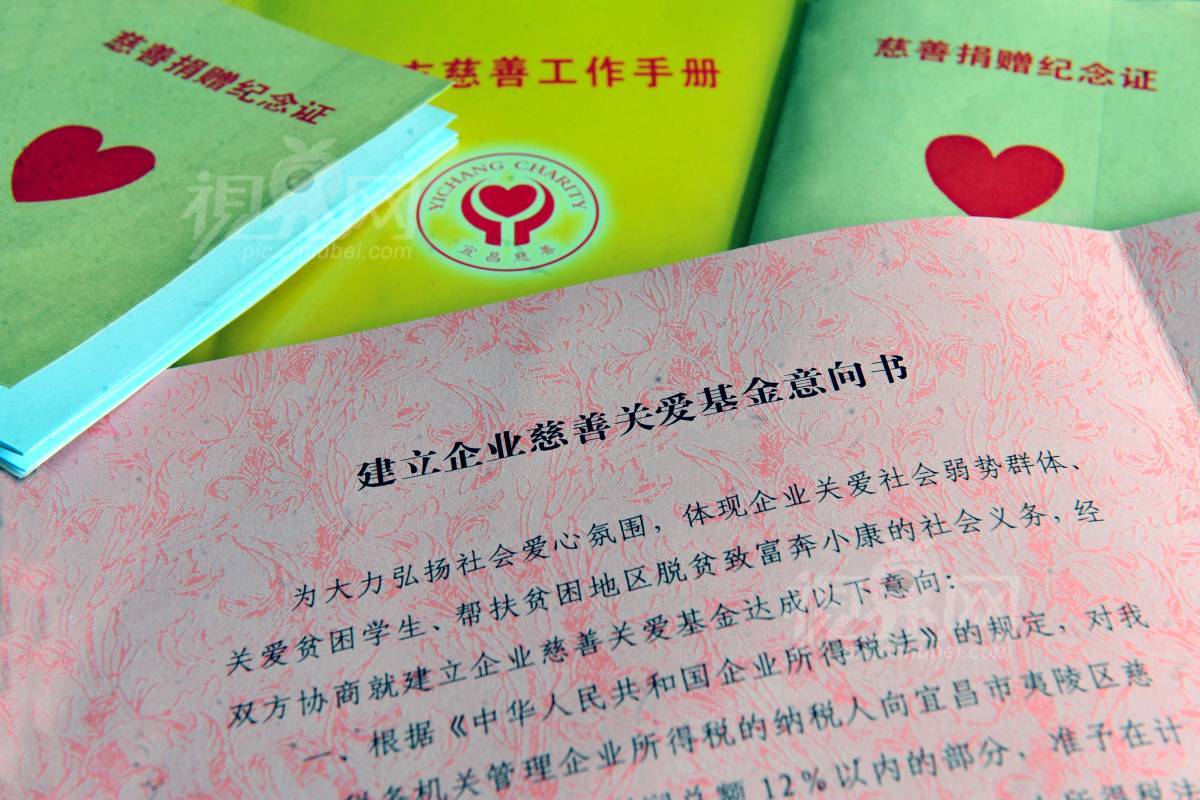 慈善捐赠纪念证
慈善工作手册
慈善捐赠纪念证
YICHANG CHARITY
宜昌慈善
建立企业慈善关爱基金意向书
为大力弘扬社会爱心氛围，体现企业关爱社会弱势群体、
关爱贫困学生、帮扶贫困地区脱贫致富奔小康的社会义务，经
双方协商就建立企业慈善关爱基金达成以下意向：
一、根据《中华人民共和国企业所得税法》的规定，对我
税务机关管理企业所得税的纳税人向宜昌市夷陵区慈
总额12%以内的部分，准予在计
所得税法
视界网